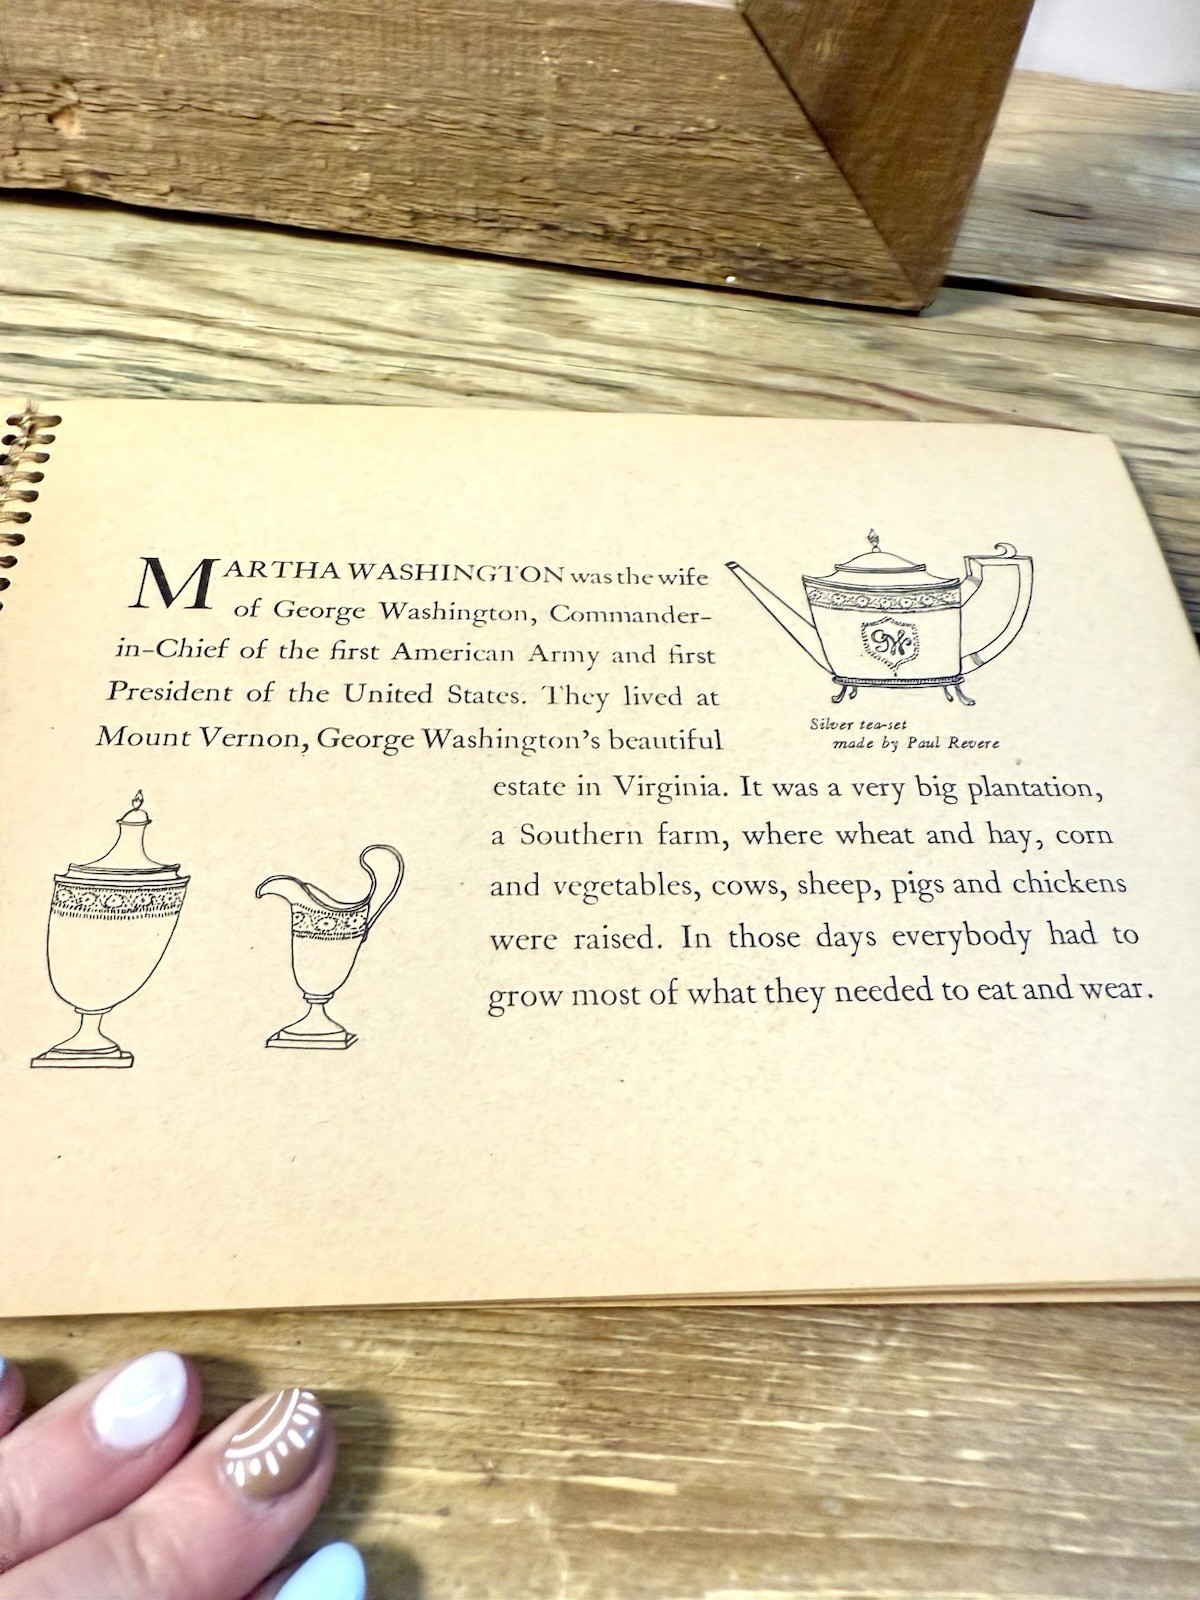 MARTHA WASHINGTON was the wife
of George Washington, Commander-
in-Chief of the first American Army and first
President of the United States. They lived at
Mount Vernon, George Washington's beautiful
estate in Virginia. It was a very big plantation,
a Southern farm, where wheat and hay, corn
and vegetables, cows, sheep, pigs and chickens
were raised. In those days everybody had to
grow most of what they needed to eat and wear.
Silver tea-set
made by Paul Revere